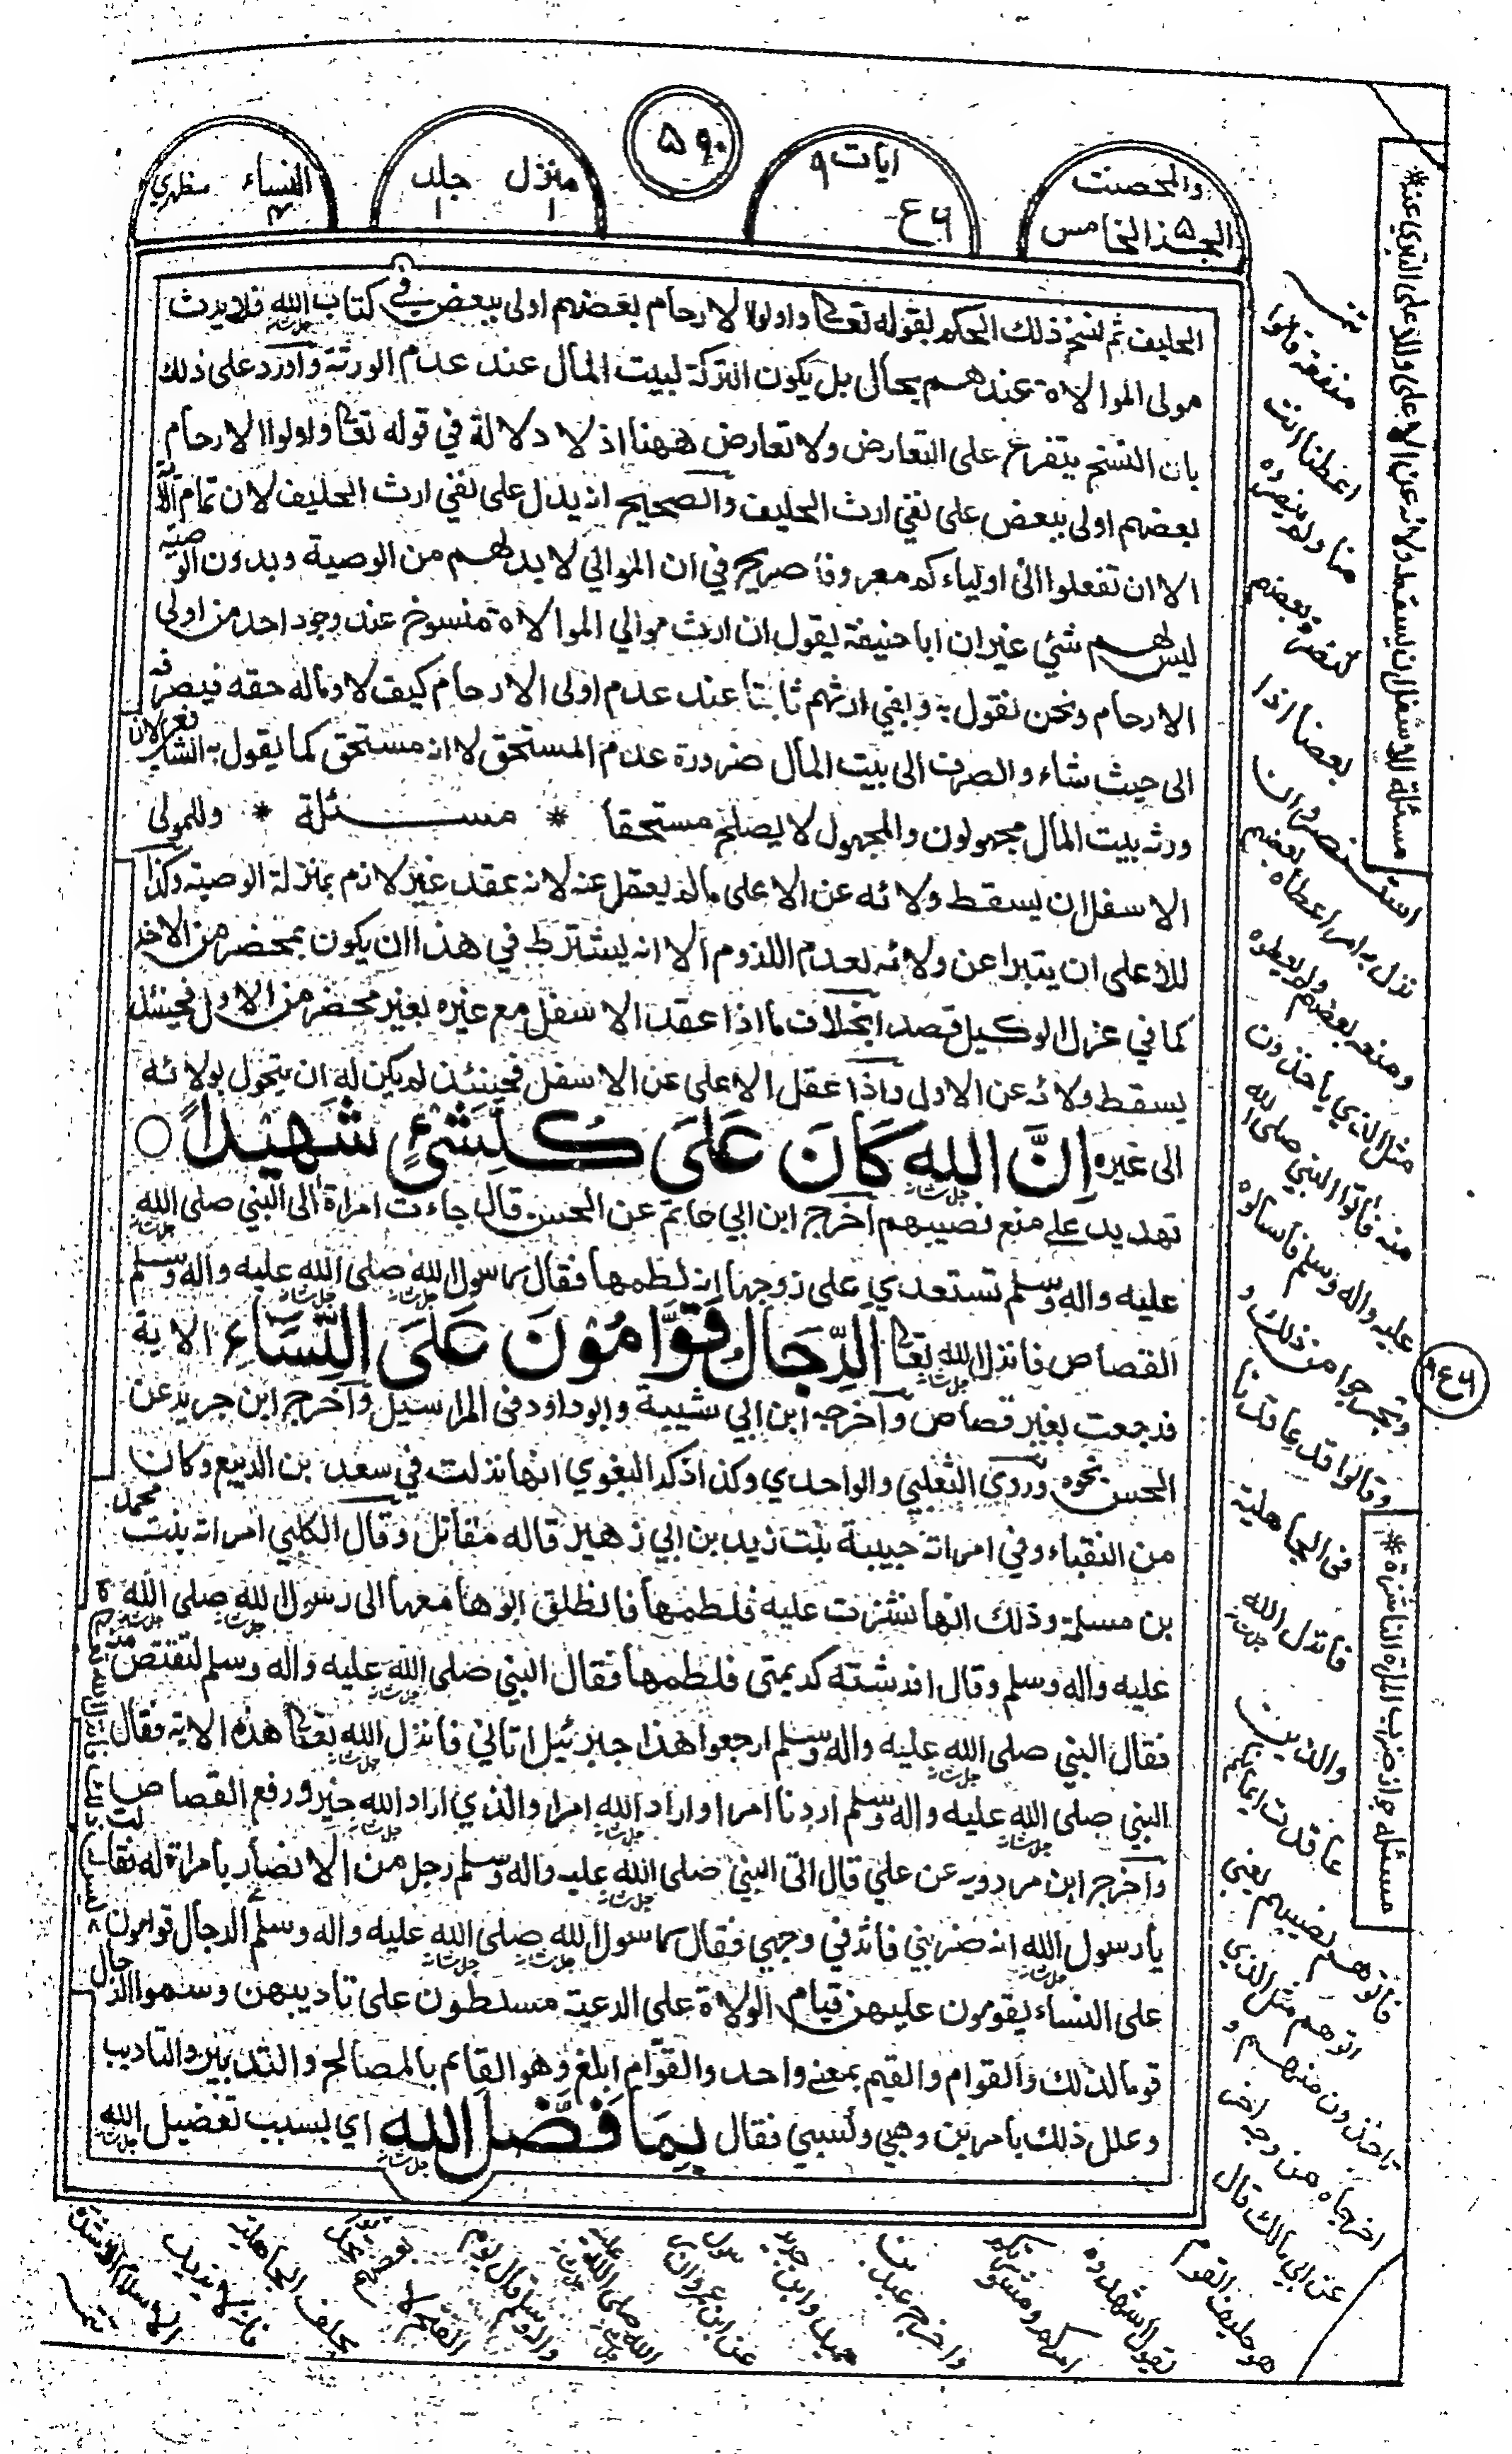 والمحصنت
الجزء الخامس ۵
ايات ۹
۶ع
۵۹۰
منزل ۱ جلد ۱
النساء ۴ مظهري
الحليف ثم نسخ ذلك الحكم لقوله تعالى واولوا الارحام بعضهم اولى ببعض في كتاب الله فلا يرث
مولى الموالاة عندهم بحال بل يكون التركة لبيت المال عند عدم الورثة واورد على ذلك
بان النسخ يتفرع على التعارض ولا تعارض ههنا اذ لا دلالة في قوله تعالى واولوا الارحام
بعضهم اولى ببعض على نفي ارث الحليف والصحيح انه يدل على نفي ارث الحليف لان تمام الاية
الا ان تفعلوا الى اولياءكم معروفا صريح في ان الموالي لا بد لهم من الوصية وبدون الوصية
ليس لهم شئ غير ان ابا حنيفة يقول ان ارث موالي الموالاة منسوخ عند وجود احد من اولى
الارحام ونحن نقول به وبقي ارثهم ثابتا عند عدم اولى الارحام كيف لا وماله حقه فيصرفه
الى حيث شاء والصرف الى بيت المال ضرورة عدم المستحق لا انه مستحق كما يقول به الشافعي لان
ورثه بيت المال مجهولون والمجهول لا يصلح مستحقا * مسئلة * وللمولى
الاسفل ان يسقط ولائه عن الاعلى مالم يعقل عنه لانه عقد غير لازم بمنزلة الوصية وكذا
للاعلى ان يتبرا عن ولائه لعدم اللزوم الا انه يشترط في هذا ان يكون بمحضر من الاخر
كما في عزل الوكيل قصدا بخلاف ما اذا عقد الاسفل مع غيره بغير محضر من الاول فحينئذ
يسقط ولائه عن الاول واذا عقل الاعلى عن الاسفل فحينئذ لم يكن له ان يتحول بولائه
الى غيره اِنَّ اللهَ كَانَ عَلَىٰ كُلِّ شَيْءٍ شَهِيْدًا ○
تهديد على منع نصيبهم اخرج ابن ابي حاتم عن الحسن قال جاءت امراة الى النبي صلى الله
عليه واله وسلم تستعدي على زوجها انه لطمها فقال رسول الله صلى الله عليه واله وسلم
القصاص فانزل الله تعالى الرِّجَالُ قَوَّامُوْنَ عَلَى النِّسَاءِ الاية
فرجعت بغير قصاص واخرجه ابن ابي شيبة وابو داود في المراسيل واخرج ابن جرير عن
الحسن نحوه وروى الثعلبي والواحدي وكذا ذكر البغوي انها نزلت في سعد بن الربيع وكان
من النقباء وفي امراته حبيبة بنت زيد بن ابي زهير قاله مقاتل وقال الكلبي امراته بنت محمد
بن مسلمة وذلك انها نشزت عليه فلطمها فانطلق ابوها معها الى رسول الله صلى الله
عليه واله وسلم وقال افرشته كريمتى فلطمها فقال النبي صلى الله عليه واله وسلم لتقتص منه
فقال النبي صلى الله عليه واله وسلم ارجعوا هذا جبرئيل اتاني فانزل الله تعالى هذه الاية فقال
النبي صلى الله عليه واله وسلم اردنا امرا واراد الله امرا والذي اراد الله خير ورفع القصاص
واخرج ابن مردويه عن علي قال اتى النبي صلى الله عليه واله وسلم رجل من الانصار بامراة له فقالت
يا رسول الله انه ضربني فاثر في وجهي فقال رسول الله صلى الله عليه واله وسلم الرجال قوامون
على النساء يقومون عليهن قيام الولاة على الرعية مسلطون على تاديبهن وسموا الرجال
قوما لذلك والقوام والقيم بمعنى واحد والقوام ابلغ وهو القائم بالمصالح والتدبير والتاديب
وعلل ذلك بامرين وهبي وكسبي فقال بِمَا فَضَّلَ اللهُ اي بسبب تفضيل الله
مسئلة للاسفل ان يسقط ولائه عن الاعلى وللاعلى التبري عنه *
منفعة قالوا
اعطنا انت
منا ولم ينصره
كنصرة بعضهم
بعضا اذا
استنصر وان
نزل به امر اعطاه بعضهم
ومنعه بعضهم ولم يعطوه
مثل الذي ياخذون
منه فاتوا النبي صلى الله
عليه واله وسلم فسالوه
وتحرجوا من ذلك و
وقالوا قد عاقدنا
في الجاهلية
فانزل الله
والذين
عاقدت ايمانكم
فاتوهم نصيبهم يعني
اتوهم مثل الذي
تاخذون منهم و
اخرجاه من وجه اخر
عن ابي مالك قال
هو حليف القوم
يقول اشهدوه
امركم ومشورتكم
واخرج عبد بن
حميد وابن جرير
۶ع۹
مسئلة جواز ضرب المراة الناشزة *